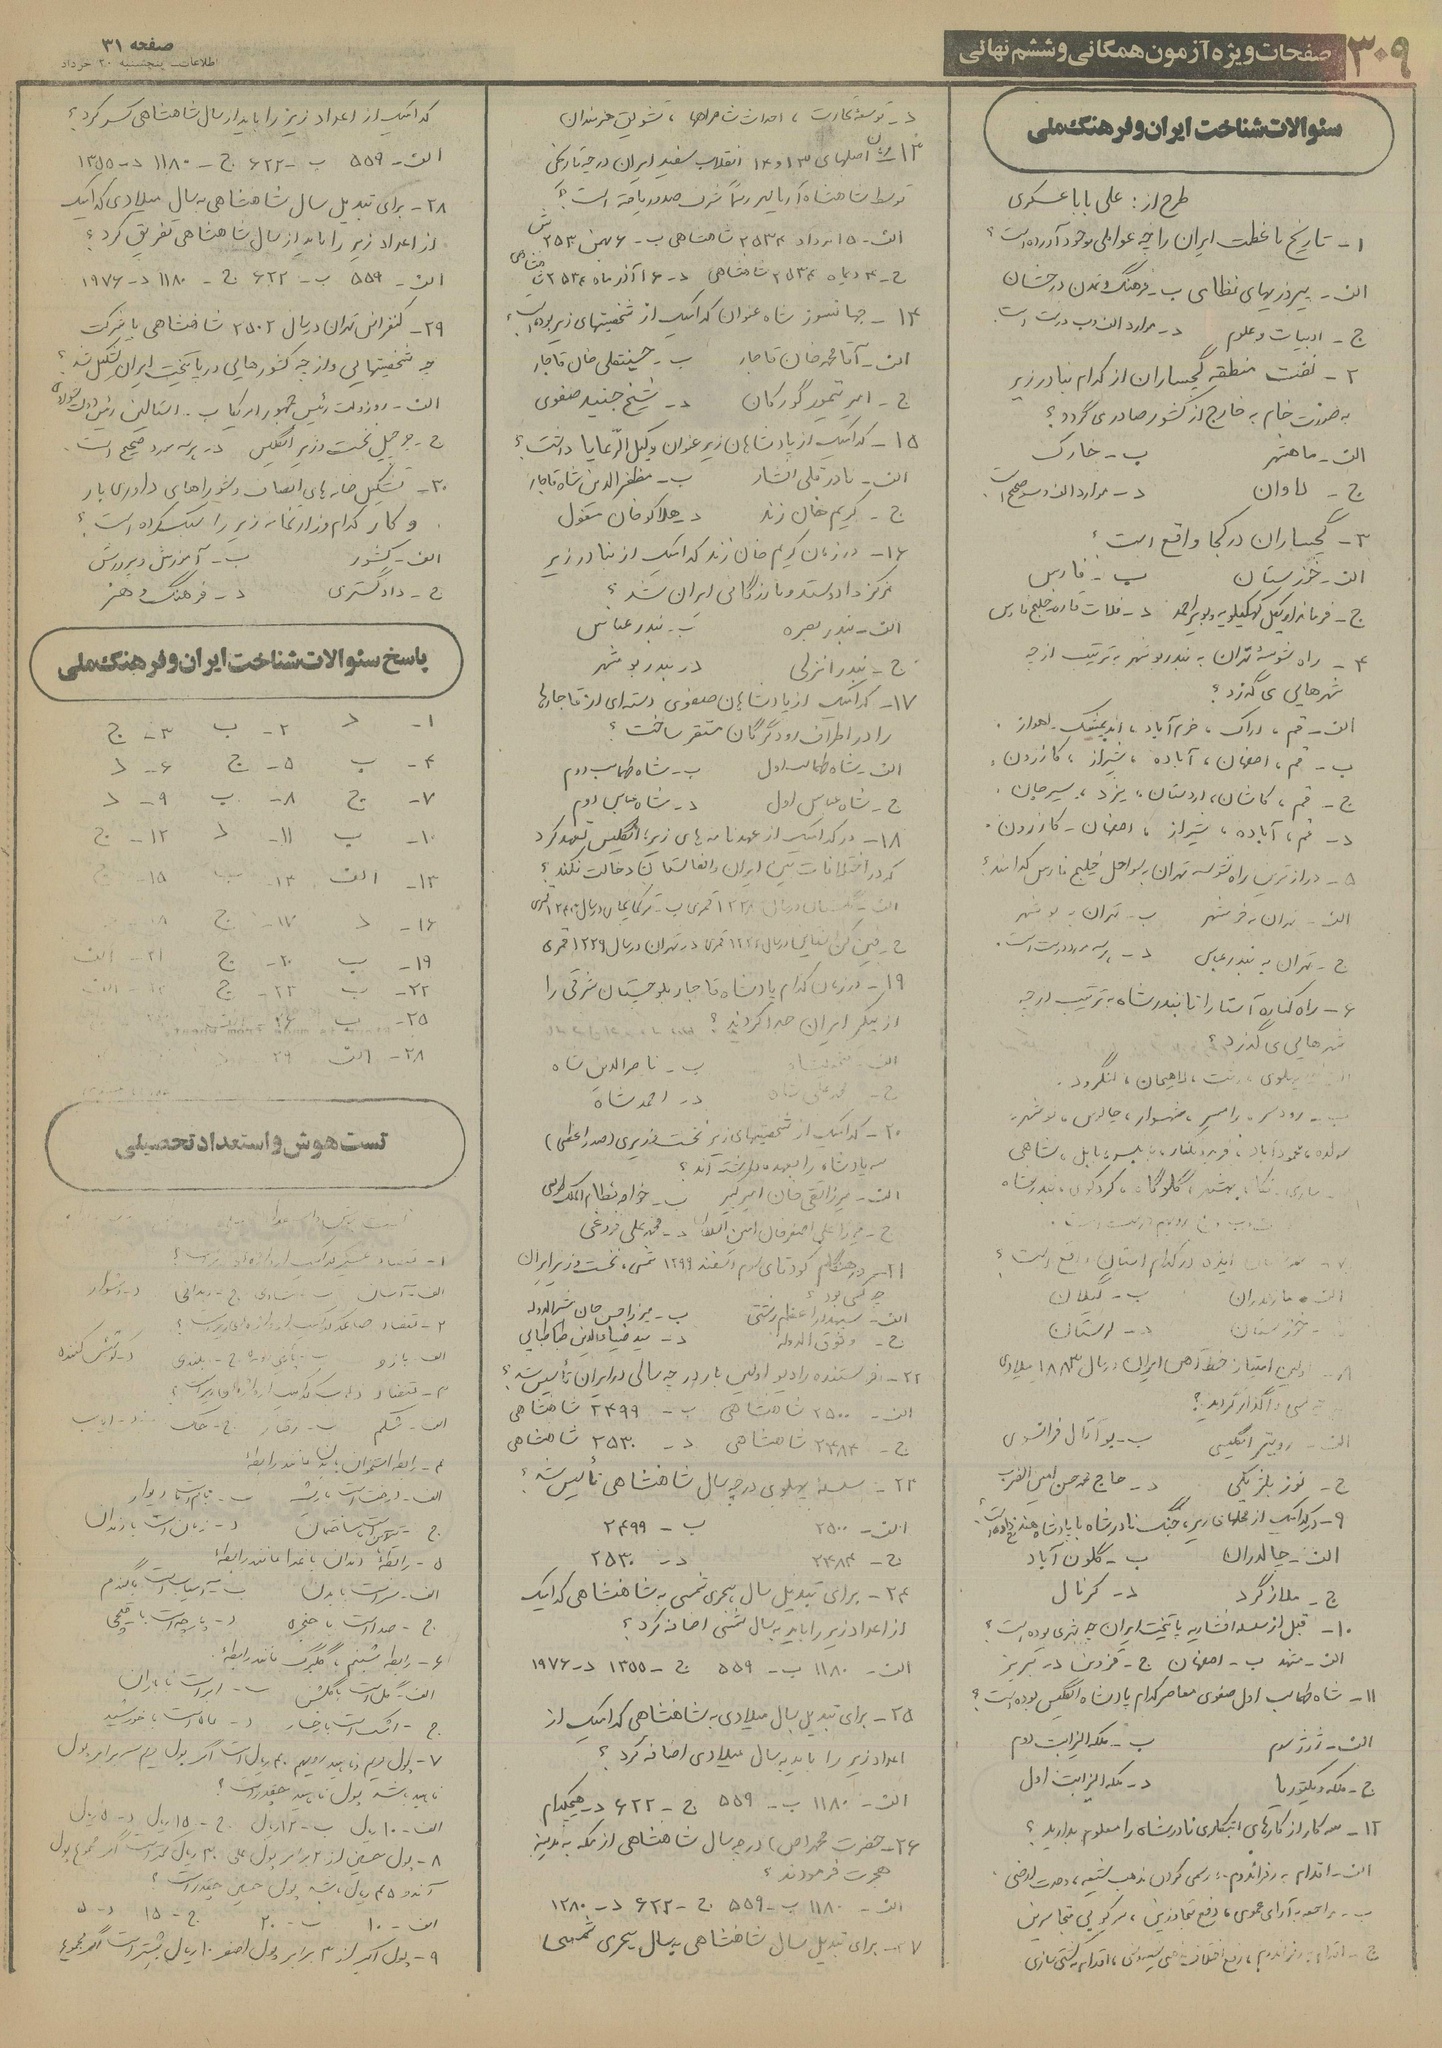 ۳۰۹ صفحات ویژه آزمون همگانی و ششم نهائی
صفحه ۳۱
اطلاعات پنجشنبه ۲۰ خرداد
سئوالات شناخت ایران و فرهنگ ملی
طرح از: علی باباعسکری
۱- تاریخ با عظمت ایران را چه عواملی بوجود آورده است؟
الف- پیروزیهای نظامی ب- فرهنگ و تمدن درخشان
ج- ادبیات و علوم د- موارد الف و ب درست است
۲- نفت منطقه گچساران از کدام بنادر زیر
به صورت خام به خارج از کشور صادر می گردد؟
الف- ماهشهر ب- خارک
ج- لاوان د- موارد الف و صحیح است
۳- گچساران در کجا واقع است؟
الف- خوزستان ب- فارس
ج- فرمانداریکل کهکیلویه و بویراحمد د- فلات قاره خلیج فارس
۴- راه شوسه تهران به بندر بوشهر به ترتیب از چه
شهرهایی می گذرد؟
الف- قم، اراک، خرم آباد، اندیمشک، اهواز.
ب- قم، اصفهان، آباده، شیراز، کازرون.
ج- قم، کاشان، اردستان، یزد، سیرجان.
د- قم، آباده، شیراز، اصفهان- کازرون.
۵- درازترین راه شوسه تهران به سواحل خلیج فارس کدامند؟
الف- تهران به خرمشهر ب- تهران به بوشهر
ج- تهران به بندرعباس د- هر سه مورد درست است.
۶- راه کناره آستارا تا بندرشاه به ترتیب از چه
شهرهایی می گذرد؟
پهلوی، رشت، لاهیجان، لنگرود.
ب- رودسر، رامسر، شهسوار، چالوس، نوشهر،
محمودآباد، فریدونکنار، بابلسر، بابل، شاهی
ساری، نکا، بهشهر، گلوگاه، کردکوی، بندرشاه
ایذه در کدام استان واقع است؟
الف- مازندران ب- گیلان
خوزستان د- لرستان
اولین امتیاز خط آهن ایران در سال ۱۸۸۳ میلادی
واگذار گردید؟
الف- رویتر انگلیسی ب- بوآتال فرانسوی
ج- نوز بلژیکی د- حاج محمدحسن امین الضرب
۹- در کدامیک از محلهای زیر، جنگ نادرشاه با پادشاه هند رخ داده است؟
الف- چالدران ب- گلون آباد
ج- ملازگرد د- کرنال
۱۰- قبل از سلسله افشاریه پایتخت ایران چه شهری بوده است؟
الف- مشهد ب- اصفهان ج- قزوین د- تبریز
۱۱- شاه طهماسب اول صفوی معاصر کدام پادشاه انگلیس بوده است؟
الف- ژرژ سوم ب- ملکه الیزابت دوم
ج- ملکه ویکتوریا د- ملکه الیزابت اول
۱۲- سه کار از کارهای ابتکاری نادرشاه را معلوم بدارید؟
الف- اقدام به رفراندوم، رسمی کردن مذهب شیعه، وحدت ارضی.
ب- مراجعه به آرای عمومی، دفع متجاوزین، سرکوبی
ج- اقدام به رفراندوم، رفع اختلافات شیعی، اقدام به کشتی سازی
د- توسعه تجارت، احداث شاهراهها، تشویق هنرمندان
۱۳- اصلهای ۱۳ و ۱۴ انقلاب سفید ایران در چه تاریخی
توسط شاهنشاه آریامهر رسماً شرف صدور یافته است؟
الف- ۱۵ مرداد ۲۵۳۴ شاهنشاهی ب- ۶ بهمن ۲۵۳
ج- ۴ دیماه ۲۵۳۴ شاهنشاهی د- ۱۶ آذر ماه ۲۵۳۴ شاهنشاهی
۱۴- جهانسوز شاه عنوان کدامیک از شخصیتهای زیر بوده است؟
الف- آقامحمدخان قاجار ب- حسینقلی خان قاجار
ج- امیر تیمور گورکان د- شیخ جنید صفوی
۱۵- کدامیک از پادشاهان زیر عنوان وکیل الرعایا داشت؟
الف- نادرقلی افشار ب- مظفرالدین شاه قاجار
ج- کریم خان زند د- هلاکوخان مغول
۱۶- در زمان کریم خان زند کدامیک از بنادر زیر
مرکز داد و ستد و بازرگانی ایران شد؟
الف- بندر بصره ب- بندرعباس
ج- بندر انزلی د- بندر بوشهر
۱۷- کدامیک از پادشاهان صفوی دسته ای از قاجارها
را در اطراف رود گرگان مستقر ساخت؟
الف- شاه طهماسب اول ب- شاه طهماسب دوم
ج- شاه عباس اول د- شاه عباس دوم
۱۸- در کدامیک از عهدنامه های زیر، انگلیس تعهد کرد
که در اختلافات بین ایران و افغانستان دخالت نکند؟
الف- گلستان در سال ۱۲۲۸ قمری ب- ترکمانچای در سال قمری
ج- فین کن اشتاین در سال قمری د- تهران در سال ۱۲۲۹ قمری
۱۹- در زمان کدام پادشاه قاجار بلوچستان شرقی را
از پیکر ایران جدا کردند؟
الف- ب- ناصرالدین شاه
ج- محمدعلی شاه د- احمدشاه
۲۰- کدامیک از شخصیتهای زیر نخست وزیری (صدراعظمی)
سه پادشاه را بعهده داشته اند؟
الف- میرزاتقی خان امیرکبیر ب- خواجه نظام الملک طوسی
ج- میرزا علی اصغرخان امین السلطان د- محمدعلی فروغی
۲۱- در هنگام کودتای سوم اسفند ۱۲۹۹ شمسی، نخست وزیر ایران
چه کسی بود؟
الف- سپهدار اعظم رشتی ب- میرزا حسن خان مشیرالدوله
ج- وثوق الدوله د- سید ضیاءالدین طباطبایی
۲۲- فرستنده رادیو اولین بار در چه سالی در ایران تأسیس شد؟
الف- ۲۵۰۰ شاهنشاهی ب- ۲۴۹۹ شاهنشاهی
ج- ۲۴۸۴ شاهنشاهی د- ۲۵۳۰ شاهنشاهی
۲۳- سلسله پهلوی در چه سال شاهنشاهی تأسیس شد؟
الف- ۲۵۰۰ ب- ۲۴۹۹
ج- ۲۴۸۴ د- ۲۵۳۰
۲۴- برای تبدیل سال هجری شمسی به شاهنشاهی کدامیک
از اعداد زیر را باید به سال شمسی اضافه کرد؟
الف- ۱۱۸۰ ب- ۵۵۹ ج- ۱۳۵۵ د- ۱۹۷۶
۲۵- برای تبدیل سال میلادی به شاهنشاهی کدامیک از
اعداد زیر را باید به سال میلادی اضافه کرد؟
الف- ۱۱۸۰ ب- ۵۵۹ ج- ۶۲۲ د- هیچکدام
۲۶- حضرت محمد (ص) در چه سال شاهنشاهی از مکه به مدینه
هجرت فرمودند؟
الف- ۱۱۸۰ ب- ۵۵۹ ج- ۶۲۲ د- ۱۲۸۰
۲۷- برای تبدیل سال شاهنشاهی به سال هجری شمسی
کدامیک از اعداد زیر را باید از سال شاهنشاهی کسر کرد؟
الف- ۵۵۹ ب- ۶۲۲ ج- ۱۱۸۰ د- ۱۳۵۵
۲۸- برای تبدیل سال شاهنشاهی به سال میلادی کدامیک
از اعداد زیر را باید از سال شاهنشاهی تفریق کرد؟
الف- ۵۵۹ ب- ۶۲۲ ج- ۱۱۸۰ د- ۱۹۷۶
۲۹- کنفرانس تهران در سال ۲۵۰۲ شاهنشاهی با شرکت
چه شخصیتهایی و از چه کشورهایی در پایتخت ایران تشکیل شد؟
الف- روزولت رئیس جمهور امریکا ب- استالین رئیس دولت شوروی
ج- چرچیل نخست وزیر انگلیس د- هر سه مورد صحیح است.
۳۰- تشکیل خانه های انصاف و شوراهای داوری بار
و کار کدام وزارتخانه زیر را سبک کرده است؟
الف- کشور ب- آموزش و پرورش
ج- دادگستری د- فرهنگ و هنر
پاسخ سئوالات شناخت ایران و فرهنگ ملی
۱- د ۲- ب ۳- ج
۴- ب ۵- ج ۶- د
۷- ج ۸- ب ۹- د
۱۰- ب ۱۱- د ۱۲- ج
۱۳- الف ۱۴- ب ۱۵- ج
۱۶- د ۱۷- ج ۱۸-
۱۹- ب ۲۰- ج ۲۱- الف
۲۲- ب ۲۳- ج ۲۴- الف
۲۵- ب ۲۶- الف
۲۸- الف ۲۹- د
تست هوش و استعداد تحصیلی
الف- آسان
الف- بازو ج- بلندی د- کوشش کننده
الف- شکم ب- رفتار
۴- رابطه استخوان با بدن مانند رابطه:
الف- درخت است با ریشه
ج- د- زبان است با دندان
۵- رابطه دندان با غذا مانند رابطه:
الف- سر است با بدن ب- آسیاب است با گندم
ج- صدا است با حنجره د- پارچه است با قیچی
۶- رابطه شبنم با گلبرگ مانند رابطه:
الف- گل است با گلشن ب- ابر است با باران
ج- اشک است با رخسار د- ماه است با خورشید
۷- پول مریم و ناهید رویهم ۴۰ ریال است اگر پول مریم سه برابر پول
ناهید باشد پول ناهید چقدر است؟
الف- ۱۰ ریال ج- ۱۵ ریال د- ۵ ریال
۸- پول حسین از ۲ برابر پول علی ۳۰ ریال کمتر است اگر مجموع پول
آندو ۴۵ ریال باشد پول حسین چقدر است؟
الف- ۱۰ ب- ۲۰ ج- ۱۵ د- ۵
۹- پول اکبر از ۳ برابر پول اصغر ۱۰ ریال بیشتر است اگر مجموع